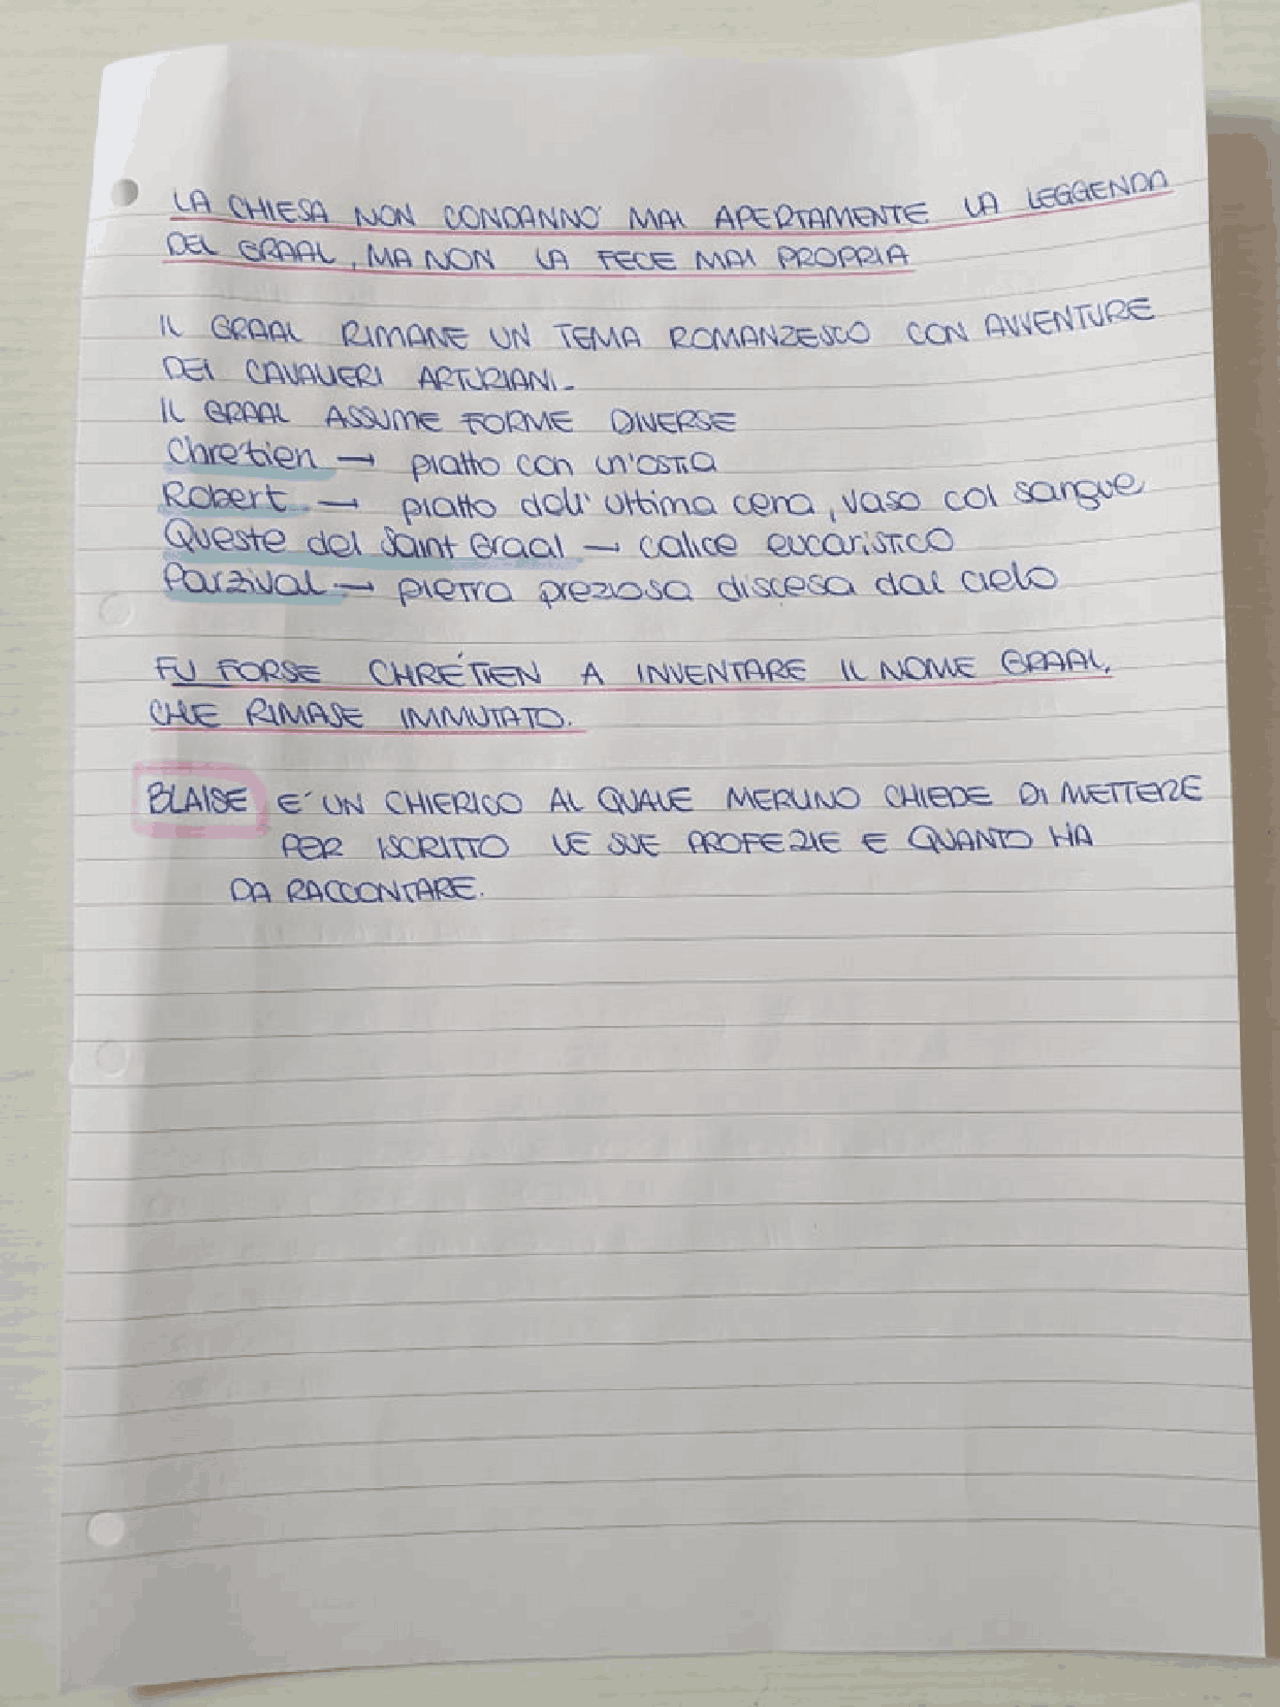 LA CHIESA NON CONDANNO' MAI APERTAMENTE LA LEGGENDA
DEL GRAAL, MA NON LA FECE MAI PROPRIA
IL GRAAL RIMANE UN TEMA ROMANZESCO CON AVVENTURE
DEI CAVALIERI ARTURIANI.
IL GRAAL ASSUME FORME DIVERSE
Chretien → piatto con un'ostia
Robert → piatto dell'ultima cena, vaso col sangue
Queste del Saint Graal → calice eucaristico
Parzival → pietra preziosa discesa dal cielo
FU FORSE CHRÉTIEN A INVENTARE IL NOME GRAAL,
CHE RIMASE IMMUTATO.
BLAISE E' UN CHIERICO AL QUALE MERLINO CHIEDE DI METTERE
PER ISCRITTO LE SUE PROFEZIE E QUANTO HA
DA RACCONTARE.